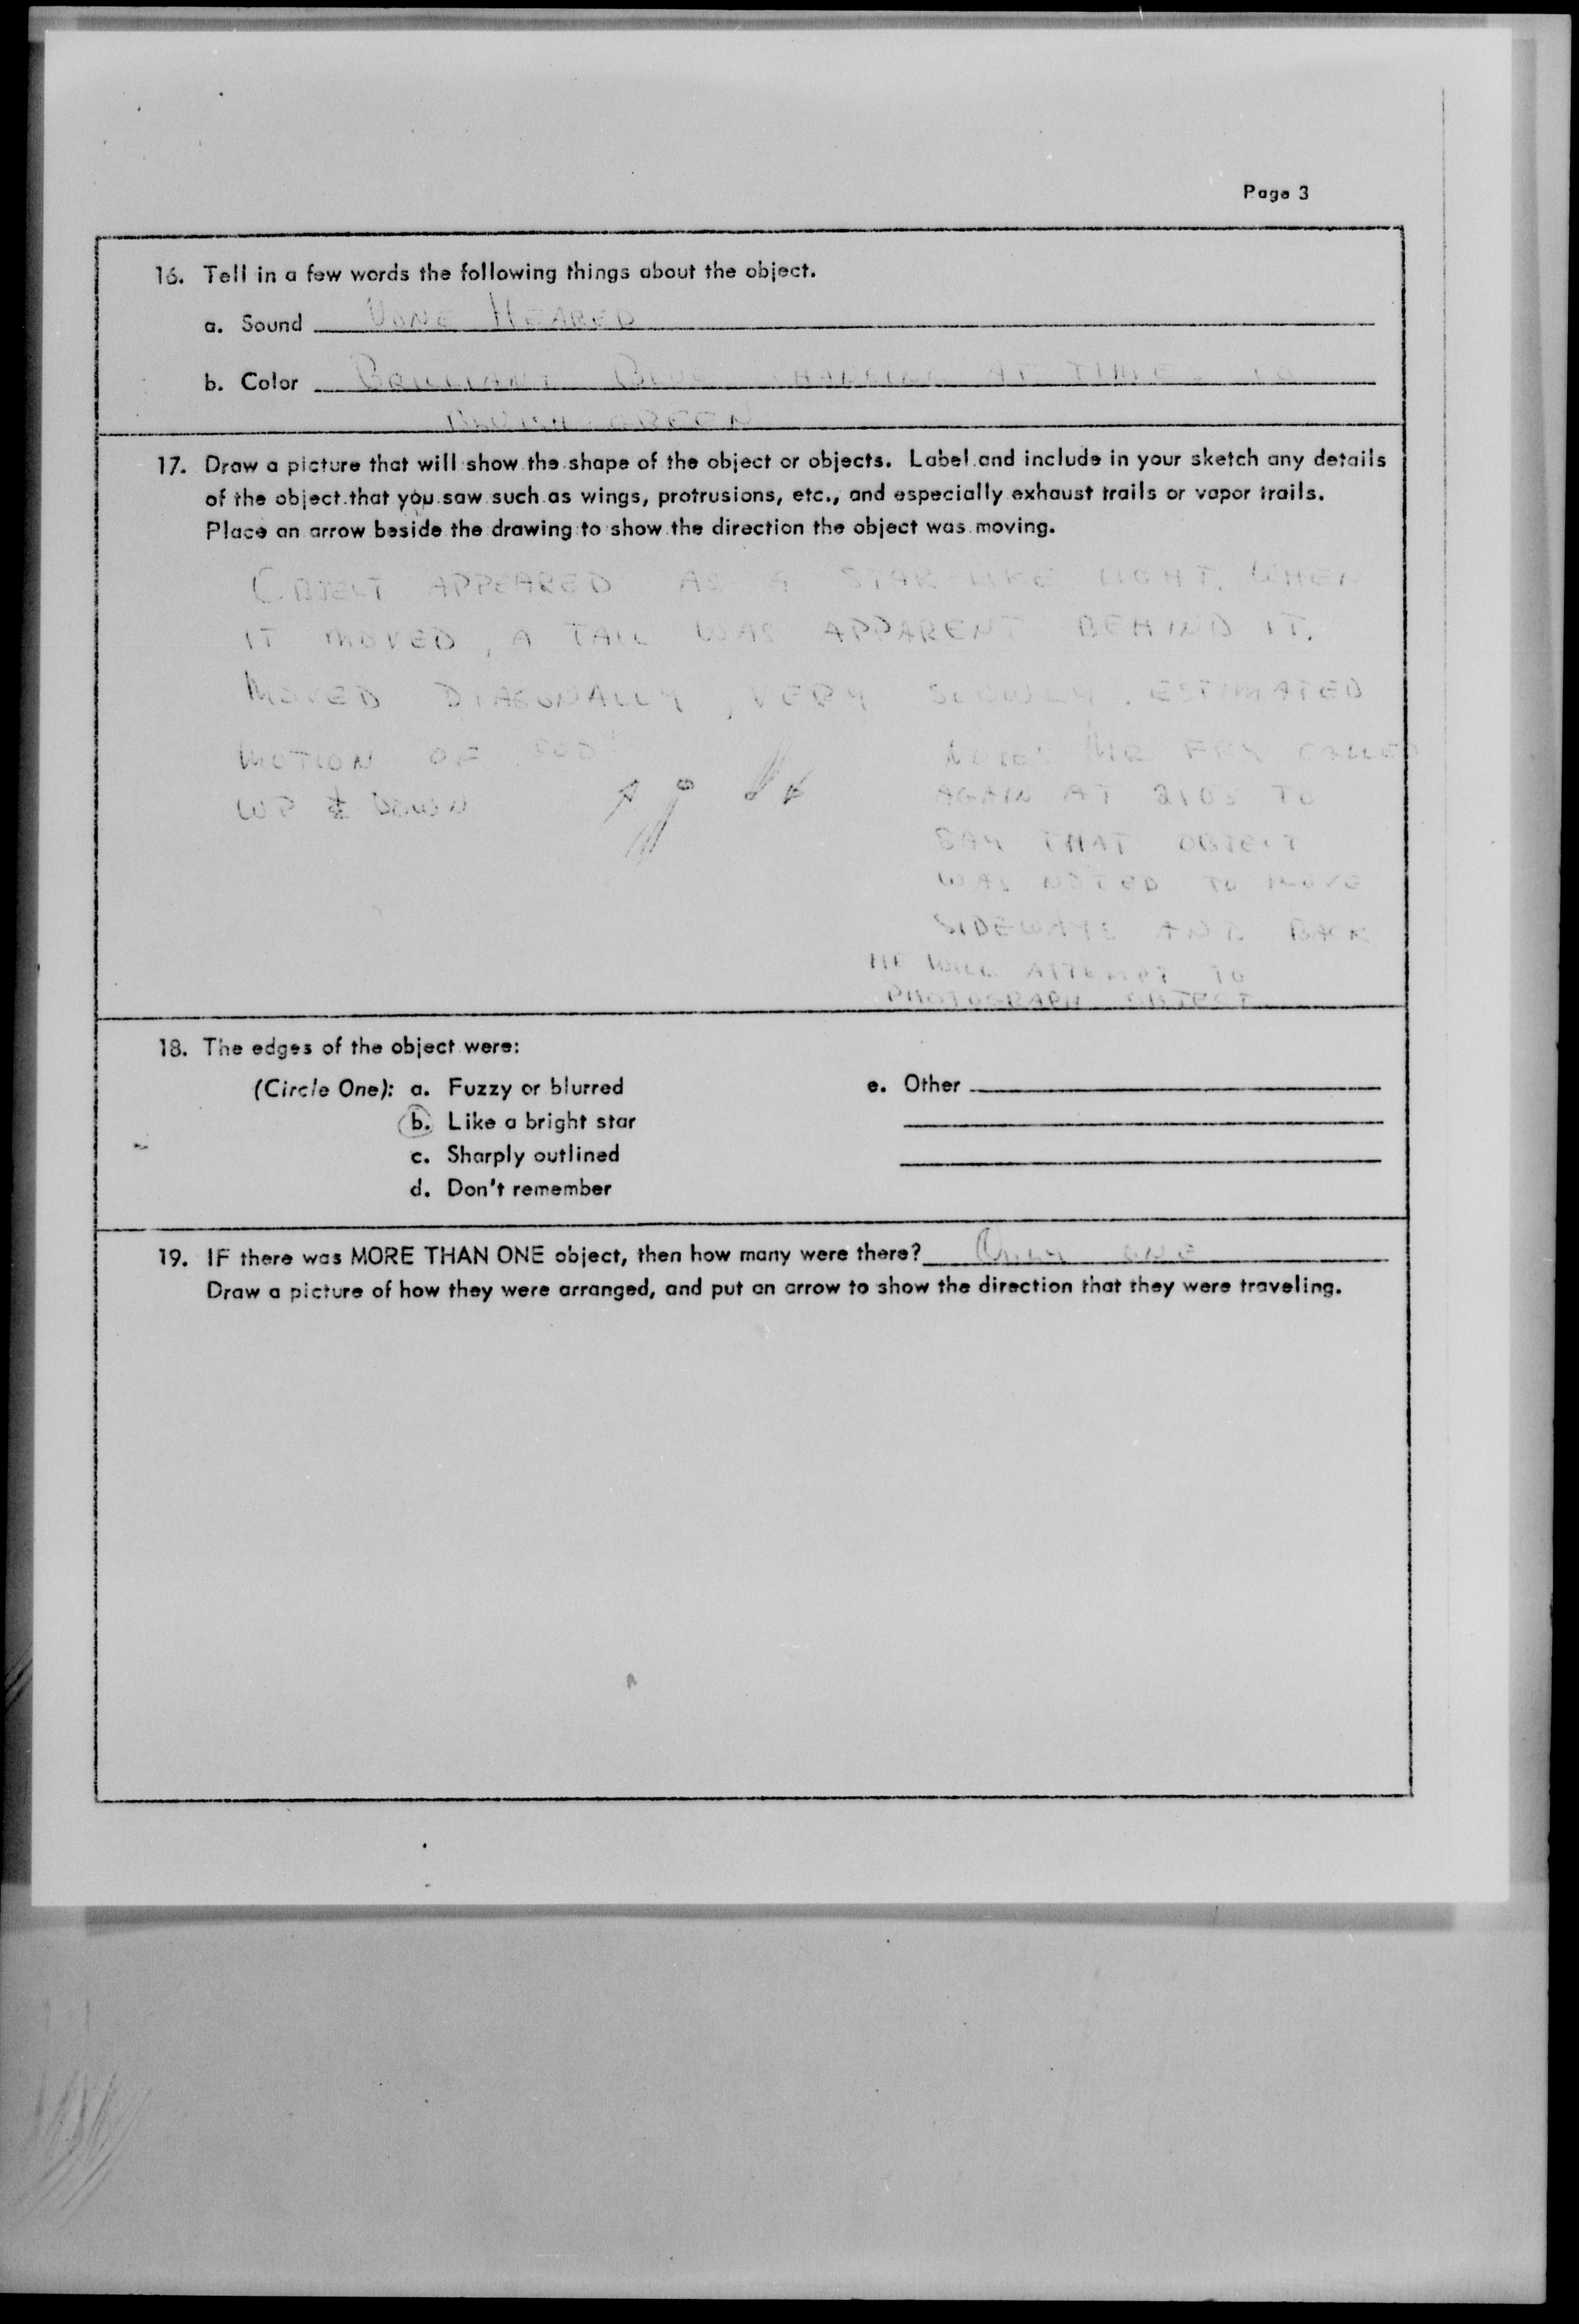 Page 3
16. Tell in a few words the following things about the object.
a. Sound NONE HEARED
b. Color BRILLIANT BLUE CHANGING AT TIMES TO
BLUISH GREEN
17. Draw a picture that will show the shape of the object or objects. Label and include in your sketch any details
of the object that you saw such as wings, protrusions, etc., and especially exhaust trails or vapor trails.
Place an arrow beside the drawing to show the direction the object was moving.
OBJECT APPEARED AS A STAR-LIKE LIGHT. WHEN
IT MOVED, A TAIL WAS APPARENT BEHIND IT.
MOVED DIAGONALLY, VERY SLOWLY. ESTIMATED
MOTION OF
UP & DOWN
NOTE: MR CALLED
AGAIN AT 2105 TO
SAY THAT OBJECT
WAS NOTED TO MOVE
SIDEWAYS AND BACK
HE WILL ATTEMPT TO
PHOTOGRAPH OBJECT
18. The edges of the object were:
(Circle One): a. Fuzzy or blurred
b. Like a bright star
c. Sharply outlined
d. Don't remember
e. Other
19. IF there was MORE THAN ONE object, then how many were there? ONLY ONE
Draw a picture of how they were arranged, and put an arrow to show the direction that they were traveling.